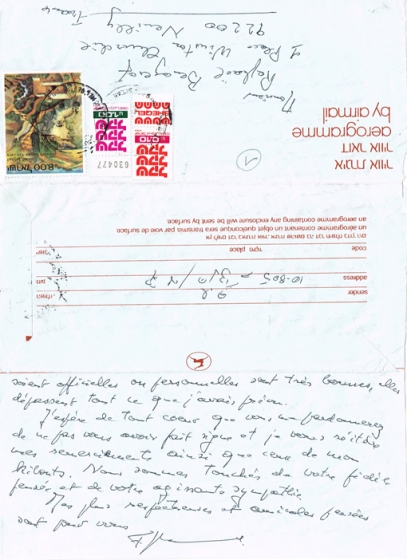 Monsieur
Raphaël
1 Place Winston Churchill
92200 Neuilly
France
איגרת אויר
דואר אויר
aerogramme
by airmail
1
8.00
ישראל
0.10
630477
un aérogramme contenant un objet quelconque sera transmis par voie de surface.
an aerogramme containing any enclosure will be sent by surface.
code
place
address
10-805
sender
soient officielles ou personnelles sont très bonnes, elles
dépassent tout ce que j'avais prévu.
J'espère de tout coeur que vous me pardonnerez
de ne pas vous avoir fait signe et je vous réitère
mes remerciements ainsi que ceux de mon
Nous sommes touchés de votre fidèle
pensée et de votre agissante sympathie
Mes plus respectueuses et amicales pensées
sont pour vous